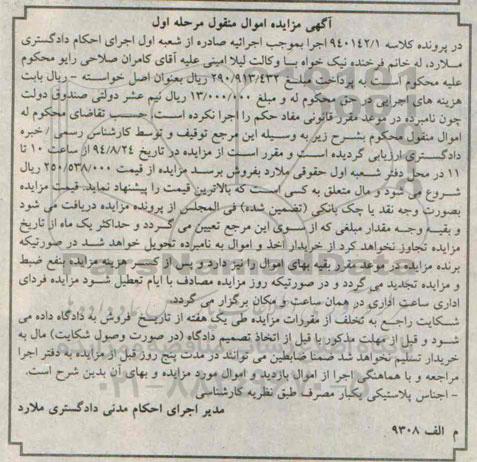 آگهی مزایده اموال منقول مرحله اول
در پرونده کلاسه ۹۴۰۱۴۲/۱ اجرا بموجب اجرائیه صادره از شعبه اول اجرای احکام دادگستری
ملارد، له خانم فرخنده نیک خواه با وکالت لیلا امینی علیه آقای کامران صلاحی رایو محکوم
علیه محکوم است به پرداخت مبلغ ۲۹۰/۹۱۳/۴۳۲ ریال بعنوان اصل خواسته - ریال بابت
هزینه های اجرایی در حق محکوم له و مبلغ ۱۳/۰۰۰/۰۰۰ ریال نیم عشر دولتی صندوق دولت
چون نامبرده در موعد مقرر قانونی مفاد حکم را اجرا نکرده است، حسب تقاضای محکوم له
اموال منقول محکوم بشرح زیر به وسیله این مرجع توقیف و توسط کارشناس رسمی / خبره
دادگستری ارزیابی گردیده است و مقرر است از مزایده در تاریخ ۹۴/۸/۲۴ از ساعت ۱۰ تا
۱۱ در محل دفتر شعبه اول حقوقی ملارد بفروش برسد مزایده از قیمت ۲۵۰/۵۳۸/۰۰۰ ریال
شروع می شود و مال متعلق به کسی است که بالاترین قیمت را پیشنهاد نماید. قیمت مزایده
بصورت وجه نقد یا چک بانکی (تضمین شده) فی المجلس از پرونده مزایده دریافت می شود
و بقیه وجه مقدار مبلغی که از سوی این مرجع تعیین می گردد و حداکثر یک ماه از تاریخ
مزایده تجاوز نخواهد کرد از خریدار اخذ و اموال به نامبرده تحویل خواهد شد در صورتیکه
برنده مزایده در موعد مقرر بقیه بهای اموال را نپردازد و پس از کسر هزینه مزایده بنفع ضبط
و مزایده تجدید می گردد و در صورتیکه روز مزایده مصادف با ایام تعطیل شود مزایده فردای
اداری ساعت اداری در همان ساعت و مکان برگزار می گردد.
شکایت راجع به تخلف از مقررات مزایده طی یک هفته از تاریخ فروش به دادگاه داده می
شود و قبل از مهلت مذکور یا قبل از اتخاذ تصمیم دادگاه (در صورت وصول شکایت) مال به
خریدار تسلیم نخواهد شد ضمنا ضابطین می توانند در مدت پنج روز قبل از مزایده به دفتر اجرا
مراجعه و با هماهنگی اجرا از اموال بازدید و اموال مورد مزایده و بهای آن بدین شرح است.
- اجناس پلاستیکی یکبار مصرف طبق نظریه کارشناسی
مدیر اجرای احکام مدنی دادگستری ملارد
م الف ۹۳۰۸
ParsNamadData